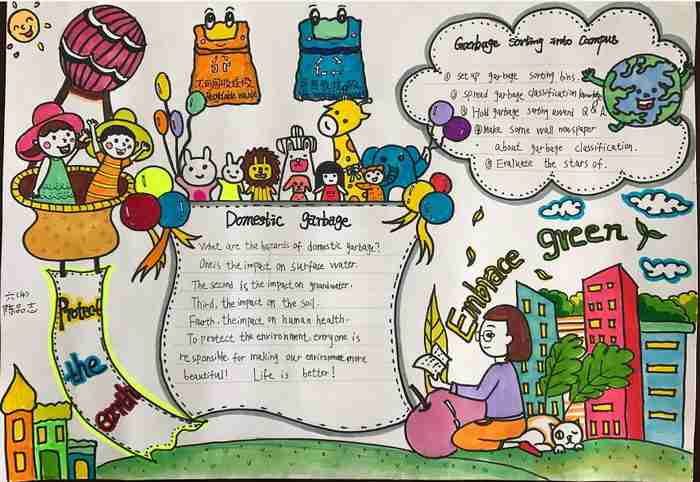 Garbage Sorting into Campus
① set up garbage sorting bins.
② spread garbage classification
③ Hold garbage sorting award Q & A
④ Make some wall newspaper
about garbage classification.
⑤ Evaluate the stars of.
不可回收垃圾
Domestic garbage
What are the hazards of domestic garbage?
One is the impact on surface water.
The second is the impact on groundwater.
Third, the impact on the soil.
Fourth, the impact on human health.
To protect the environment, everyone is
responsible for making our environment more
beautiful! Life is better!
Embrace green
六(4)
陈品志
Protect
the
earth